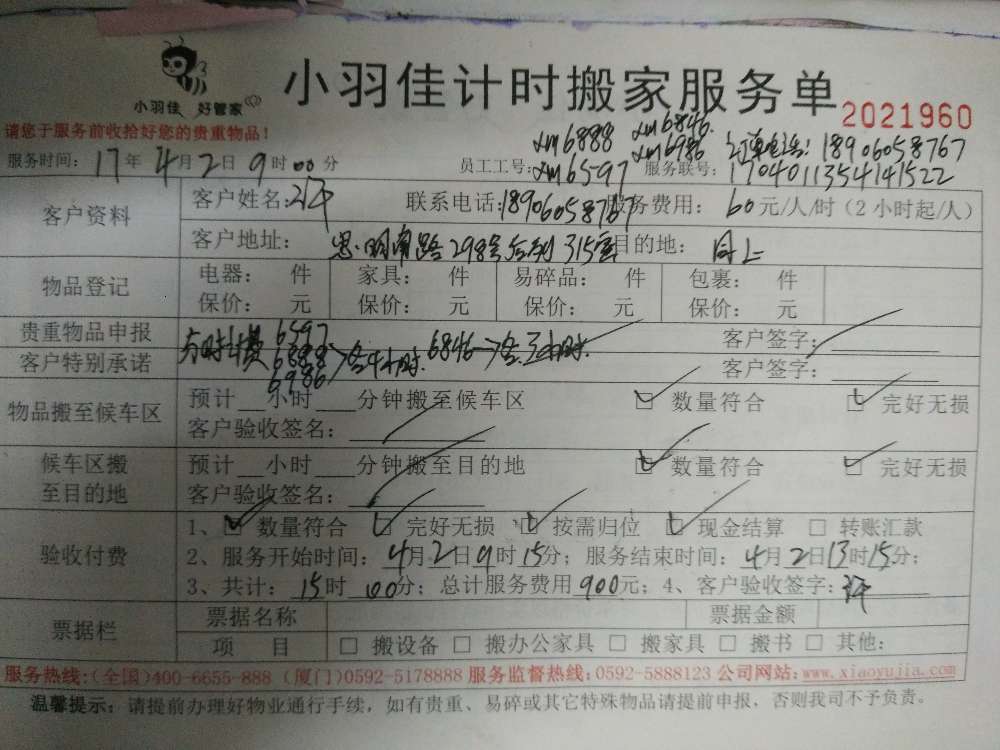 小羽佳 好管家
小羽佳计时搬家服务单
2021960
请您于服务前收拾好您的贵重物品！
xm6888 xm6846
xm6986 订单电话: 18906058767
服务时间: 17年 4月2日9时00分 员工工号: xm6597 服务联号: 1704011354141522
客户资料
客户姓名: 联系电话: 18906058767 服务费用: 60元/人/时（2小时起/人）
客户地址: 思明南路298号 315室 目的地: 同上
物品登记
电器: 件 家具: 件 易碎品: 件 包裹: 件
保价: 元 保价: 元 保价: 元 保价: 元
贵重物品申报 客户签字:
6597
按时计费 6888 各4小时. 6846 各3小时.
6986
客户特别承诺 客户签字:
物品搬至候车区
预计 小时 分钟搬至候车区 数量符合 完好无损
客户验收签名:
候车区搬至目的地
预计 小时 分钟搬至目的地 数量符合 完好无损
客户验收签名:
验收付费
1、 数量符合 完好无损 按需归位 现金结算 转账汇款
2、服务开始时间: 4月2日9时15分; 服务结束时间: 4月2日13时15分;
3、共计: 15时00分; 总计服务费用900元; 4、客户验收签字:
票据栏
票据名称 票据金额
项 目 搬设备 搬办公家具 搬家具 搬书 其他:
服务热线:(全国)400-6655-888 (厦门)0592-5178888 服务监督热线: 0592-5888123 公司网站: www.xiaoyujia.com
温馨提示: 请提前办理好物业通行手续，如有贵重、易碎或其它特殊物品请提前申报，否则我司不予负责。